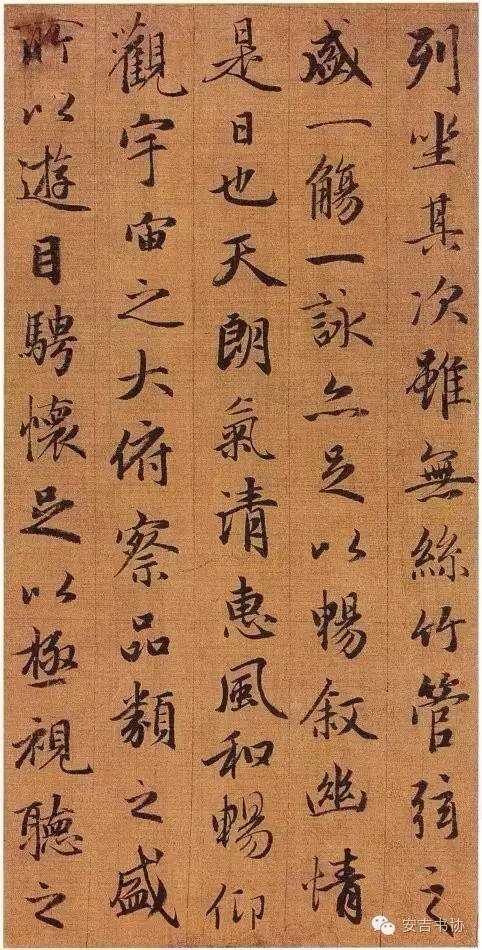 列坐其次雖無絲竹管弦之
盛一觴一詠亦足以暢叙幽情
是日也天朗氣清惠風和暢仰
觀宇宙之大俯察品類之盛
所以遊目騁懷足以極視聽之
安吉书协